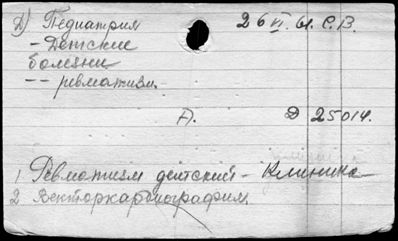 Д) Педиатрия 26 VI. 61. С.В.
- Детские
болезни
-- ревматизм.
А. Д 25014.
1 Ревматизм детский - Клиника
2 Векторкардиография